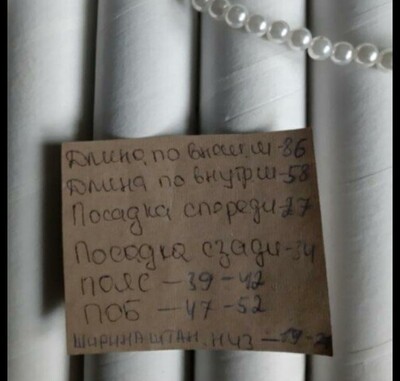 Длина по внешн-86
Длина по внутрш-58
Посадка спереди-27
Посадка сзади-34
ПОЯС - 39 - 42
ПОБ - 47 - 52
ШИРИНА ШТАН. НИЗ - 19 -